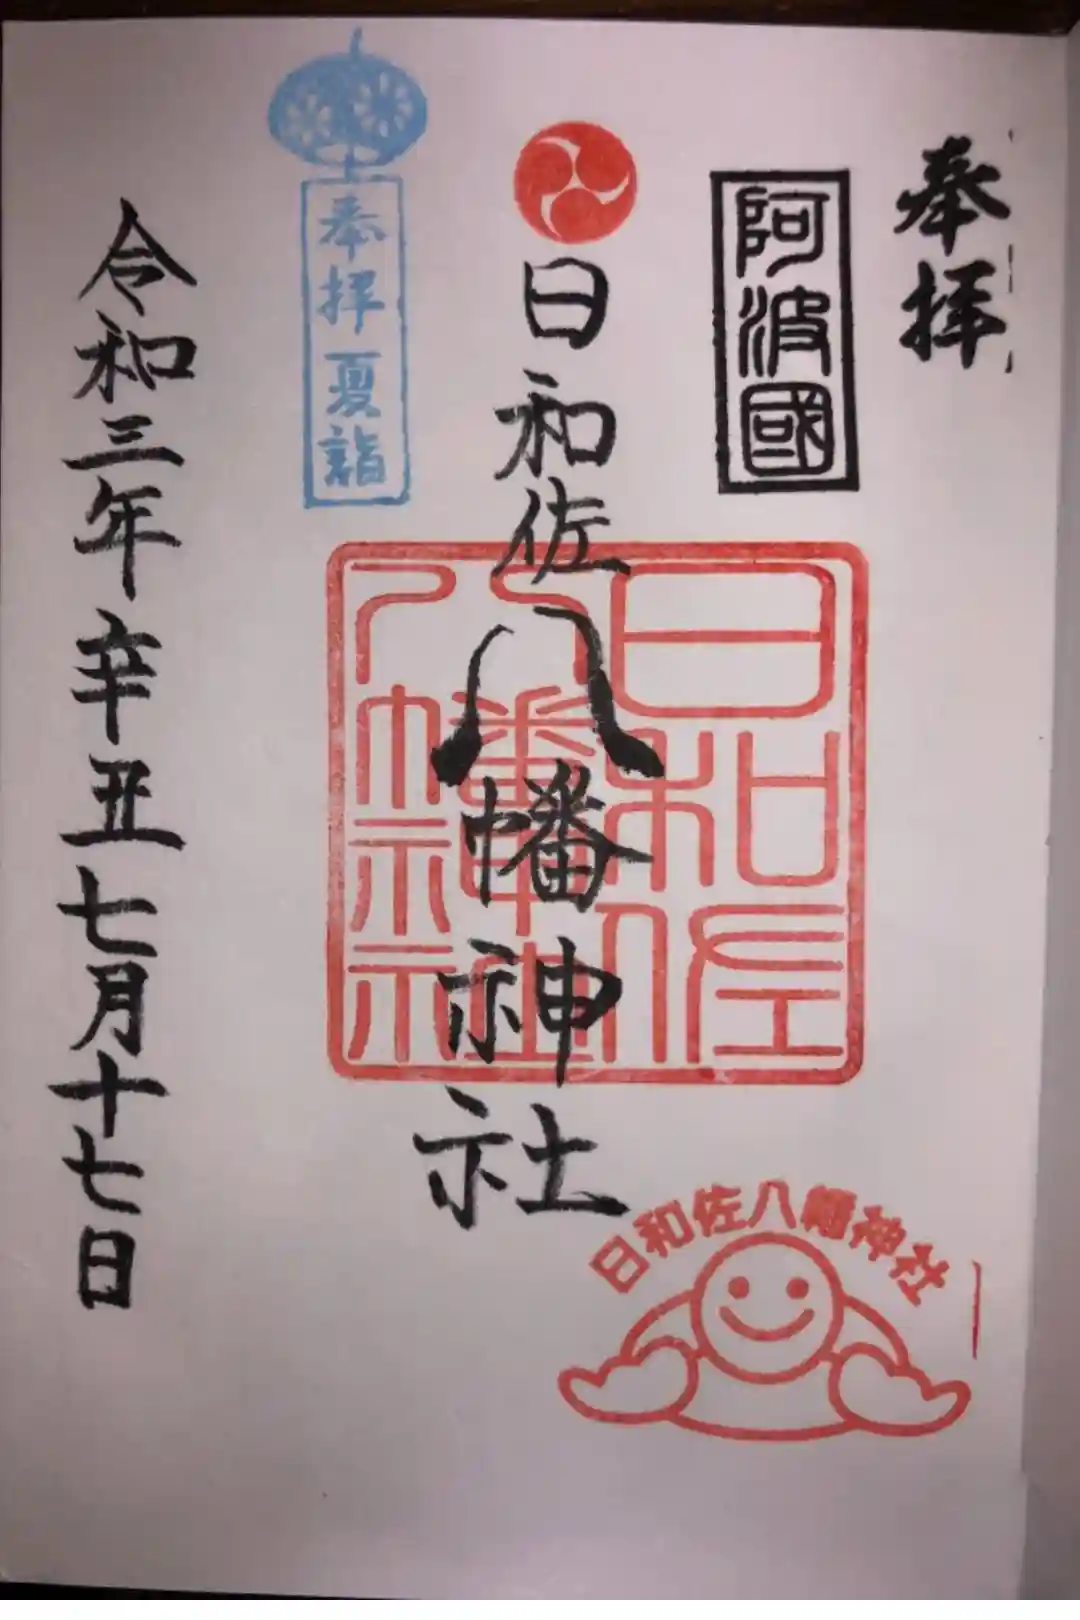 奉拝
阿波國
日和佐八幡神社
日和佐
八幡神社
奉拝夏詣
令和三年辛丑七月十七日
日和佐八幡神社